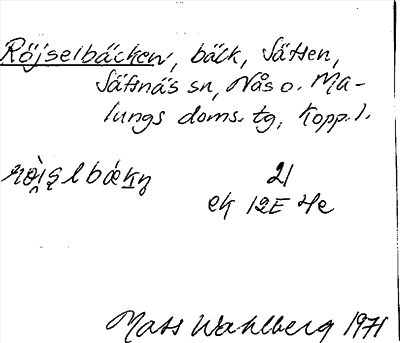 Röjselbäcken, bäck, Sätsen,
Säfsnäs sn, Nås o. Ma-
lungs doms. tg, Kopp. l.
21
ek 12E 4e
Mats Wahlberg 1971